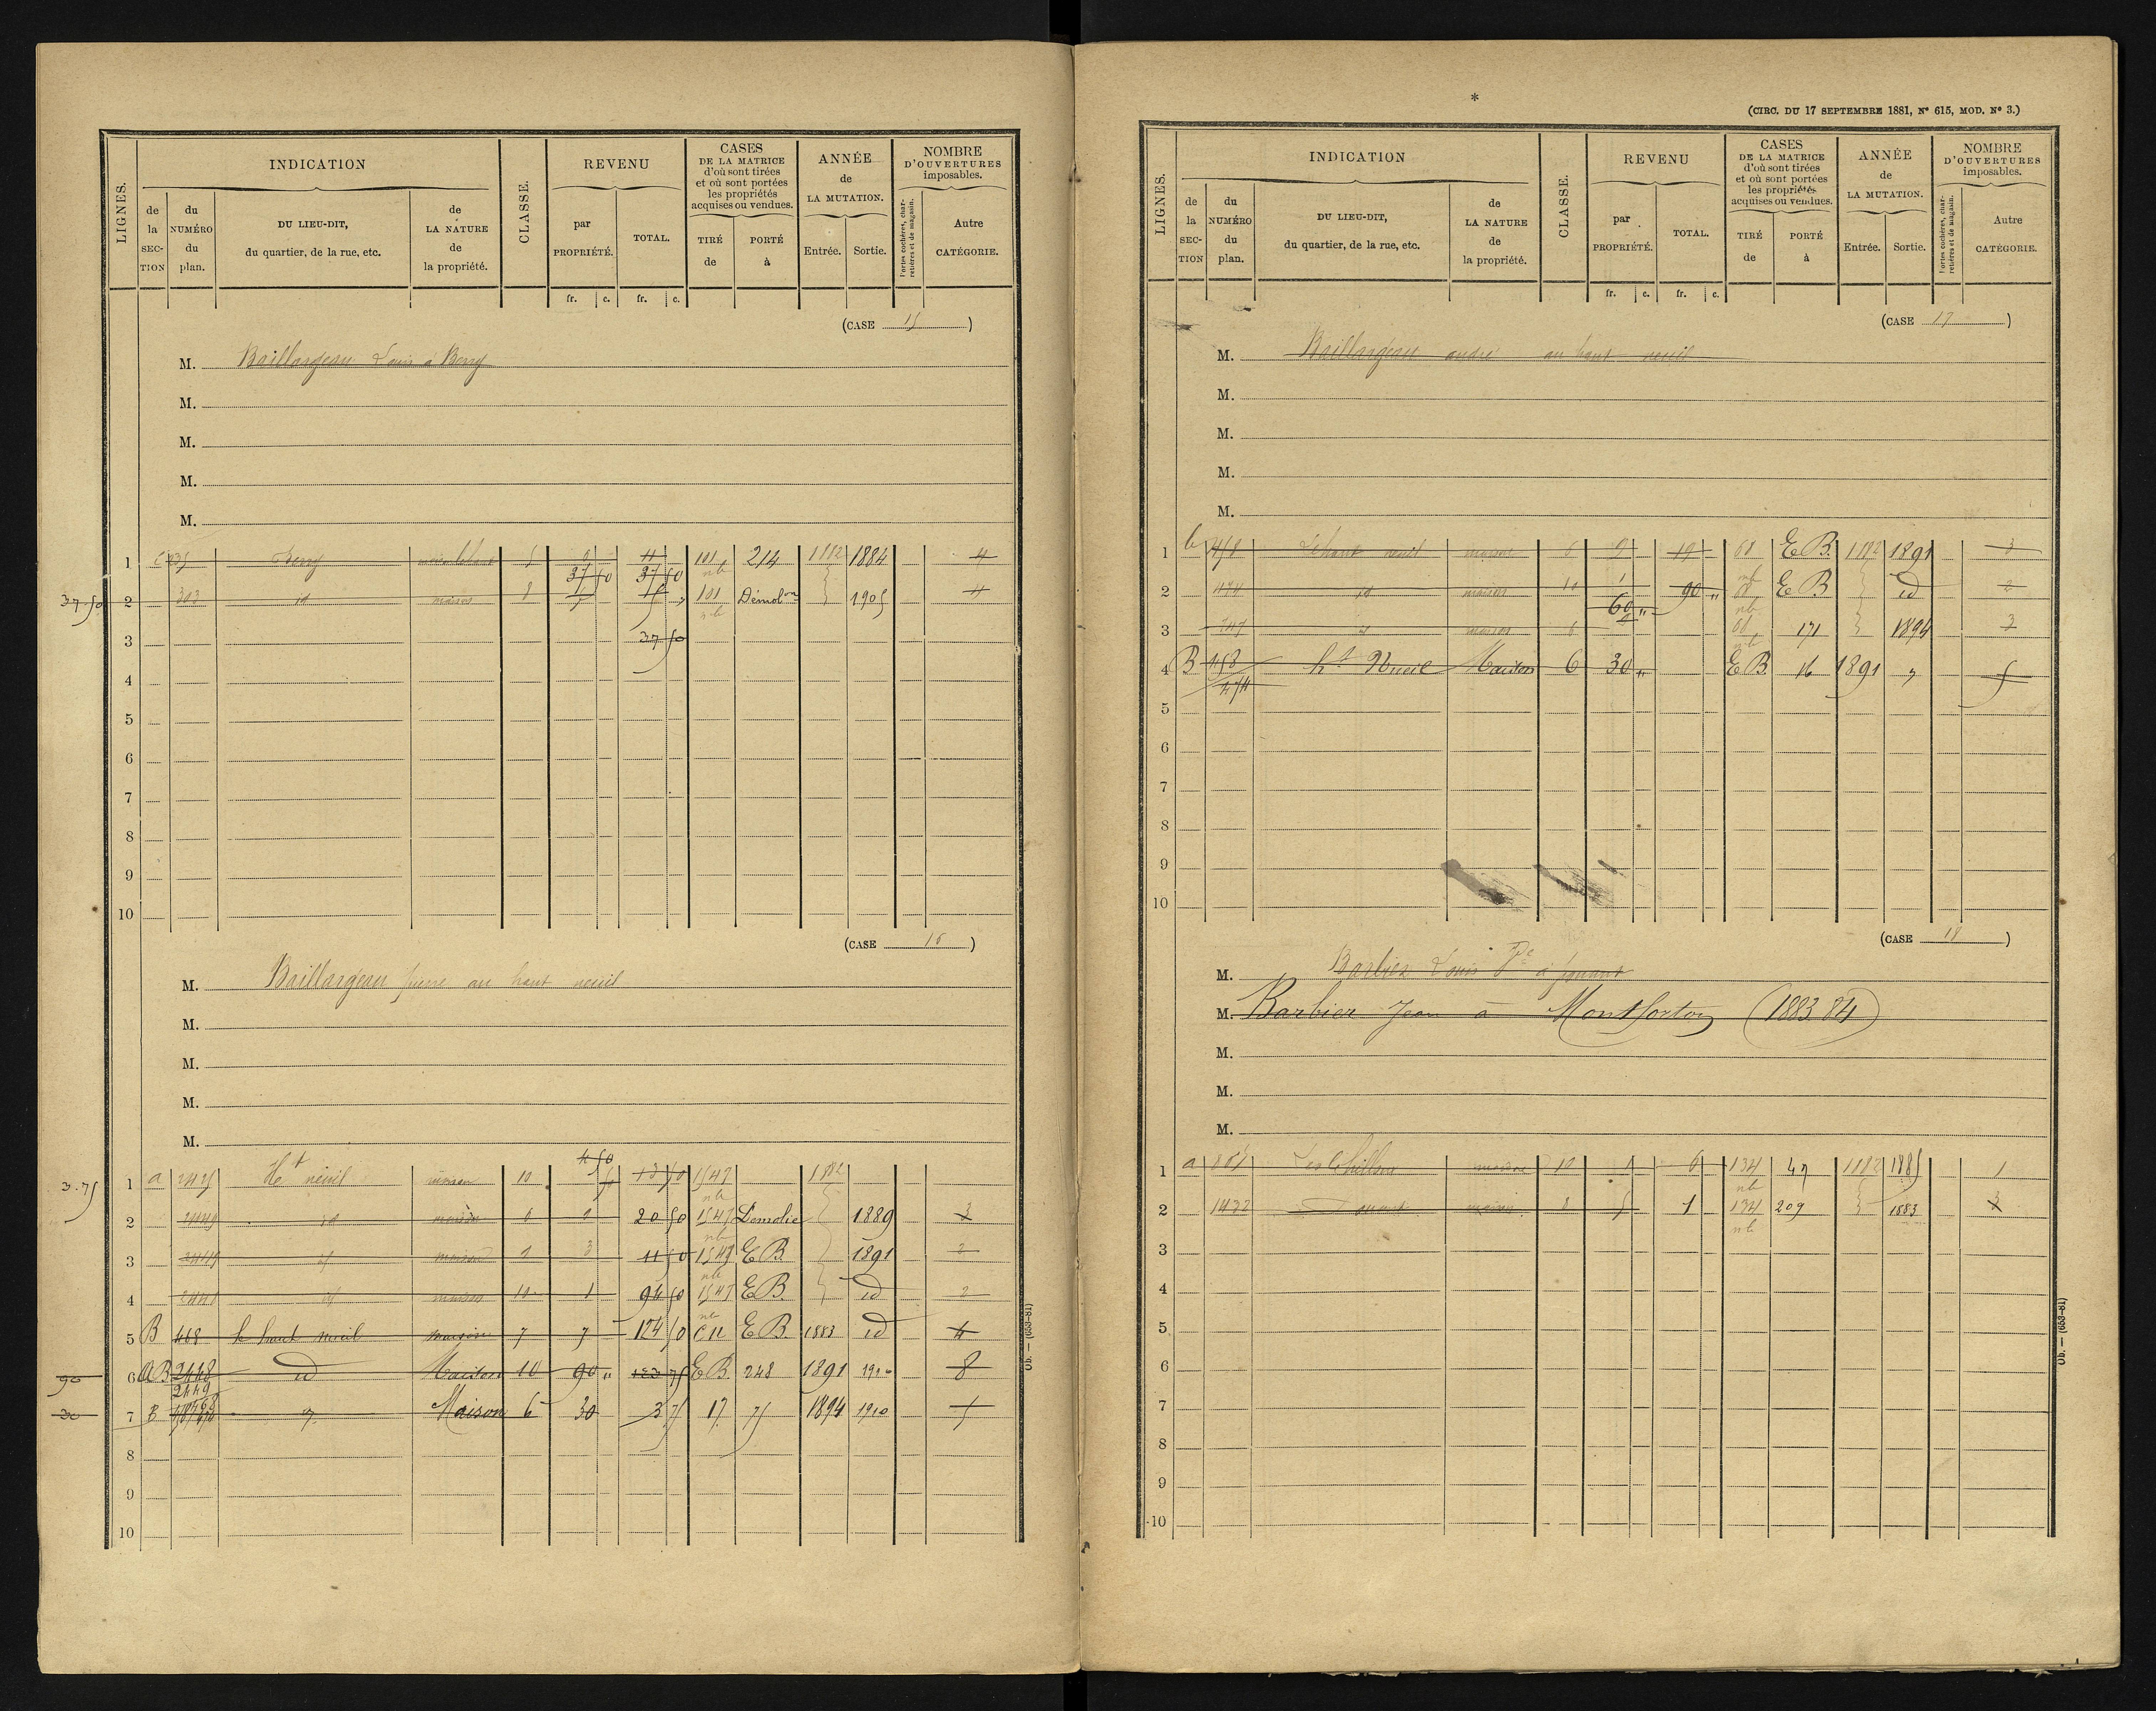 LIGNES.
INDICATION
de la SECTION
du NUMÉRO du plan.
DU LIEU-DIT, du quartier, de la rue, etc.
de LA NATURE de la propriété.
CLASSE.
REVENU
par PROPRIÉTÉ.
TOTAL.
fr. c. fr. c.
CASES DE LA MATRICE d'où sont tirées et où sont portées les propriétés acquises ou vendues.
TIRÉ de
PORTÉ à
ANNÉE de LA MUTATION.
Entrée. Sortie.
NOMBRE D'OUVERTURES imposables.
Portes cochères, charretières et de magasin.
Autre CATÉGORIE.
(CASE 15)
M. Baillargeau Louis à Berry
M.
M.
M.
M.
1 Berry 5 9 11 101 214 1882 1884 4
37 50 37 50
37.50 2 303 id maison 8 101 Démolon 1905 4
3 37 50
4
5
6
7
8
9
10
(CASE 16)
M. Baillargeau pierre au haut neuil
M.
M.
M.
M.
4 50
3.75 1 a Ht neuil maison 10 13 50 1547 1882
2 id maison 20 50 1547 Démolie 1889 3
3 2449 id maison 3 11 50 1547 E B. 1891 2
4 2448 id maison 10 1 94 50 1547 E B. id 2
5 B 468 le haut neuil maison 7 7 124 50 C 12 E B. 1883 id 4
90 6 AB 2448 id Maison 10 90 " E B. 248 1891 1910 8
2449
30 7 B Maison 6 30 3 75 17 75 1894 1910 5
8
9
10
Ob. — (653-81)
*
(CIRC. DU 17 SEPTEMBRE 1881, N° 615, MOD. N° 3.)
LIGNES.
INDICATION
de la SECTION
du NUMÉRO du plan.
DU LIEU-DIT, du quartier, de la rue, etc.
de LA NATURE de la propriété.
CLASSE.
REVENU
par PROPRIÉTÉ.
TOTAL.
fr. c. fr. c.
CASES DE LA MATRICE d'où sont tirées et où sont portées les propriétés acquises ou vendues.
TIRÉ de
PORTÉ à
ANNÉE de LA MUTATION.
Entrée. Sortie.
NOMBRE D'OUVERTURES imposables.
Portes cochères, charretières et de magasin.
Autre CATÉGORIE.
(CASE 17)
M. Baillargeau andré au haut neuil
M.
M.
M.
M.
1 b 458 Le haut neuil maison 6 9 19 68 E B. 1882 1891 3
2 474 id maison 10 1 90 " 68 E B id 2
60 "
3 id maison 6 68 171 1894 3
4 B 458 ht Neuil Maison 6 30 " E B. 16 1891 " 5
474
5
6
7
8
9
10
(CASE 18)
M. Barbier Louis
M. Barbier Jean à Montforton (1883 84)
M.
M.
M.
M.
1 a maison 10 1 6 134 47 1882 1885 1
2 1432 maison 8 5 1 134 209 1883
3
4
5
6
7
8
9
10
Ob. — (653-81)